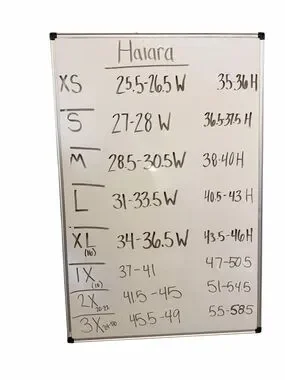 Halara
XS 25.5-26.5 W 35-36 H
S 27-28 W 36.5-37.5 H
M 28.5-30.5 W 38-40 H
L 31-33.5 W 40.5-43 H
XL 34-36.5 W 43.5-46 H
(16)
1X 37-41 47-50.5
(18)
2X 41.5-45 51-54.5
20-22
3X 45.5-49 55-58.5